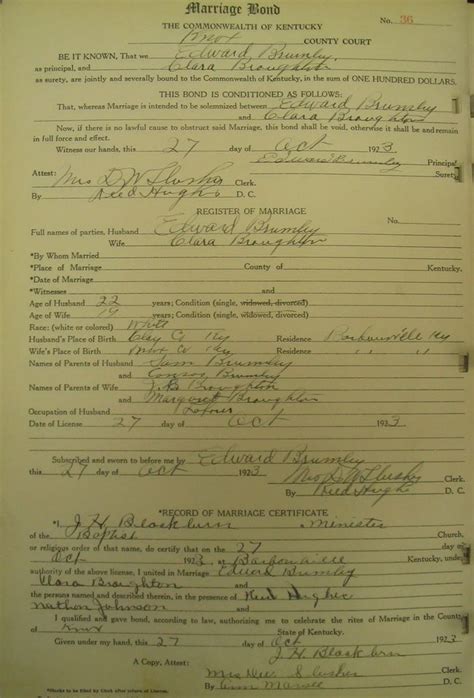 Marriage Bond
No. 36
THE COMMONWEALTH OF KENTUCKY
Knox COUNTY COURT
BE IT KNOWN, That we Edward Brumley
as principal, and Clara Broughton
as surety, are jointly and severally bound to the Commonwealth of Kentucky, in the sum of ONE HUNDRED DOLLARS.
THIS BOND IS CONDITIONED AS FOLLOWS:
That, whereas Marriage is intended to be solemnized between Edward Brumley
and Clara Broughton
Now, if there is no lawful cause to obstruct said Marriage, this bond shall be void, otherwise it shall be and remain
in full force and effect.
Witness our hands, this 27 day of Oct 1923
Edward Brumley Principal
Attest: Surety
Mrs D W Slusher Clerk.
By Reed Hughes D. C.
REGISTER OF MARRIAGE
No.
Full names of parties, Husband Edward Brumley
Wife Clara Broughton
*By Whom Married
*Place of Marriage County of Kentucky.
*Date of Marriage
*Witnesses and
Age of Husband 22 years; Condition (single, widowed, divorced)
Age of Wife 19 years; Condition (single, widowed, divorced)
Race: (white or colored) White
Husband's Place of Birth Clay Co Ky Residence Barbourville Ky
Wife's Place of Birth Knox Co Ky Residence " " "
Names of Parents of Husband Brumley
and Brumley
Names of Parents of Wife Broughton
and Margaret Broughton
Occupation of Husband
Date of License 27 day of Oct 1933
Subscribed and sworn to before me by Edward Brumley
this 27 day of Oct 1923 Mrs D W Slusher
By Reed Hughes
*RECORD OF MARRIAGE CERTIFICATE
*I, J. H. Blackburn a Minister
of the Baptist Church,
or religious order of that name, do certify that on the 27 day of
Oct 1923, at Barbourville Kentucky, under
authority of the above license, I united in Marriage Edward Brumley
and Clara Broughton
the persons named and described therein, in the presence of Reed Hughes
Nathan Johnson
I qualified and gave bond, according to law, authorising me to celebrate the rites of Marriage in the County
of Knox State of Kentucky.
Given under my hand, this 27 day of Oct 1923
J. H. Blackburn
A Copy, Attest:
Mrs Slusher
By
*Blanks to be filled by Clerk after return of License.